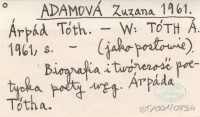 ADAMOVÁ Zuzana 1961.
Árpád Tóth. – W: TÓTH Á.
1961, s. – (jako posłowie).
Biografia i twórczość poe-
tycka poety węg. Árpáda
Tótha.